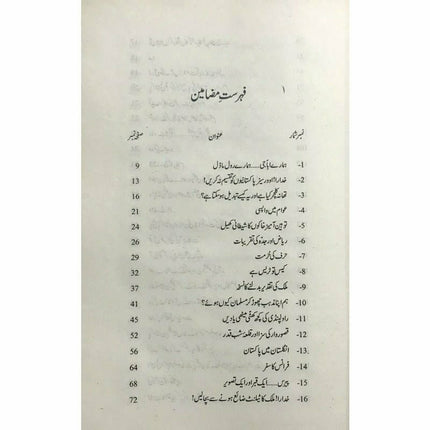 ۱
فہرستِ مضامین
نمبر شمار عنوان صفحہ نمبر
-1 ہمارے اباجی.....ہمارے رول ماڈل 9
-2 خدارا! اوورسیز پاکستانیوں کو تقسیم نہ کریں! 13
-3 تھانہ کلچر کیا ہے اور یہ کیسے تبدیل ہو سکتا ہے؟ 16
-4 عوام میں واپسی 21
-5 توہین آمیز خاکوں کا شیطانی کھیل 24
-6 ریاض اور جدّہ کی تقریبات 26
-7 حرف کی حُرمت 29
-8 کیس تو ٹریس ہے 32
-9 ملک کی تقدیر بدلنے کا نسخہ 37
-10 ہم اپنا مذہب چھوڑ کر مسلمان کیوں ہوئے؟ 41
-11 راولپنڈی کی کچھ کھٹی میٹھی یادیں 45
-12 قصور وار کی سزا اور قلعۂ سب قدر 52
-13 انگلستان میں پاکستان 56
-14 فرانس کا سفر 64
-15 پیرس.....ایک قبر اور ایک تصویر 68
-16 خدارا! ملک کا ٹیلنٹ ضائع ہونے سے بچالیں! 72